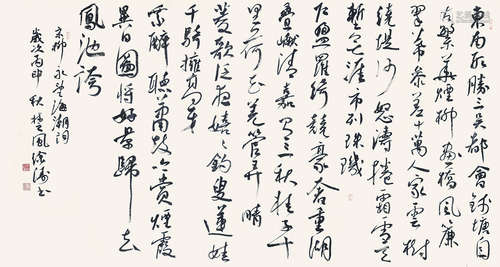 東南形勝三吴都會錢塘自
古繁華煙柳畫橋風簾
翠幕參差十萬人家雲樹
繞堤沙怒濤捲霜雪天
塹無涯市列珠璣
户盈羅綺競豪奢重湖
疊巘清嘉有三秋桂子十
里荷花羌管弄晴
菱歌泛夜嬉嬉釣叟蓮娃
千騎擁高牙
乘醉聽簫鼓吟賞煙霞
異日圖將好景歸去
鳳池誇
宋柳永望海潮詞
歲次丙申秋楚風書